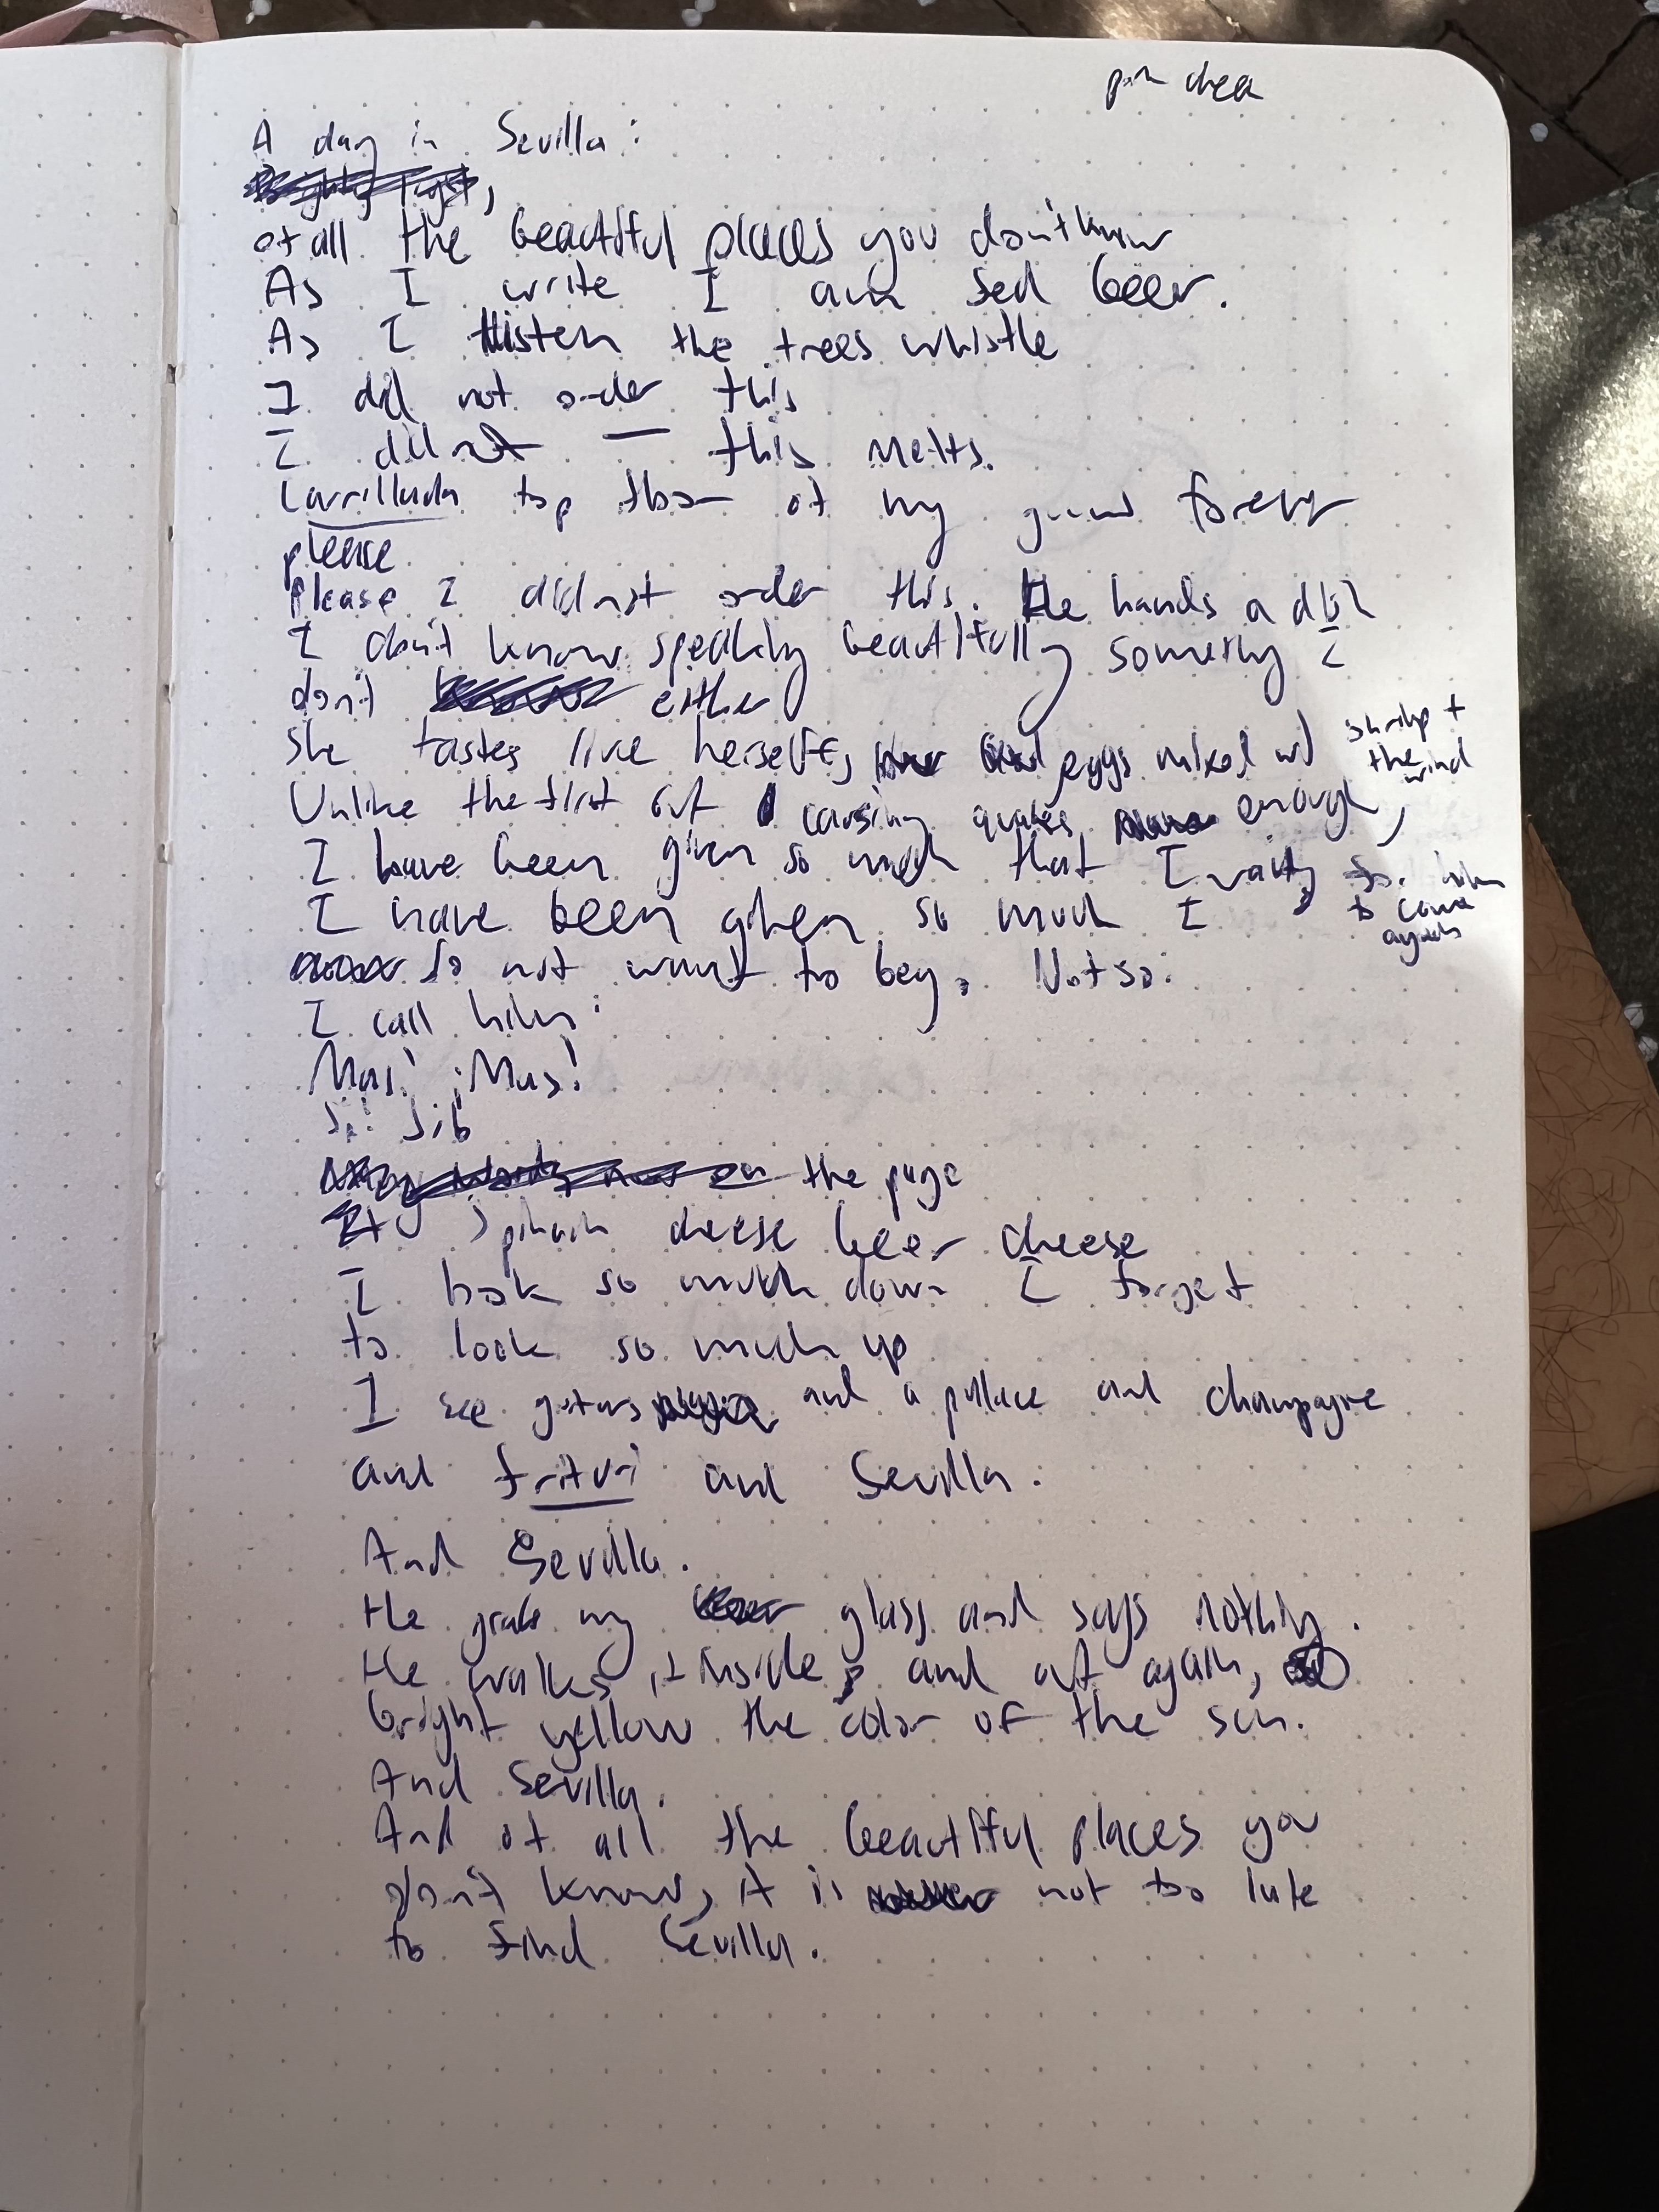 A day in Sevilla:
of all the beautiful places you don't know
As I write I am fed beer.
As I listen the trees whistle
I did not order this
I did not — this melts.
Carrillada top floor of my forever
please
Please I did not order this. He hands a dish
I don't know speaking beautifully something I
don't either
She tastes like herself, eggs mixed w/ shrimp +
the wind
Unlike the first but causing quakes enough,
I have been given so much that I wait for him
to come
again
I have been given so much I
do not want to beg. Not so:
I call him:
Mas! ¡Mas!
the page
Spinach cheese beer cheese
I look so much down I forget
to look so much up
I see guitars and a pallace and champagne
and frituri and Sevilla.
And Sevilla.
He grabs my glass and says nothing.
He walks it inside and out again,
bright yellow the color of the sun.
And Sevilla.
And of all the beautiful places you
don't know, it is not too late
to find Sevilla.